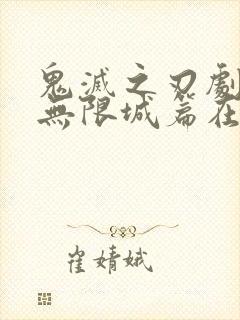 鬼滅之刃劇
無限城篇在
崔婧娥